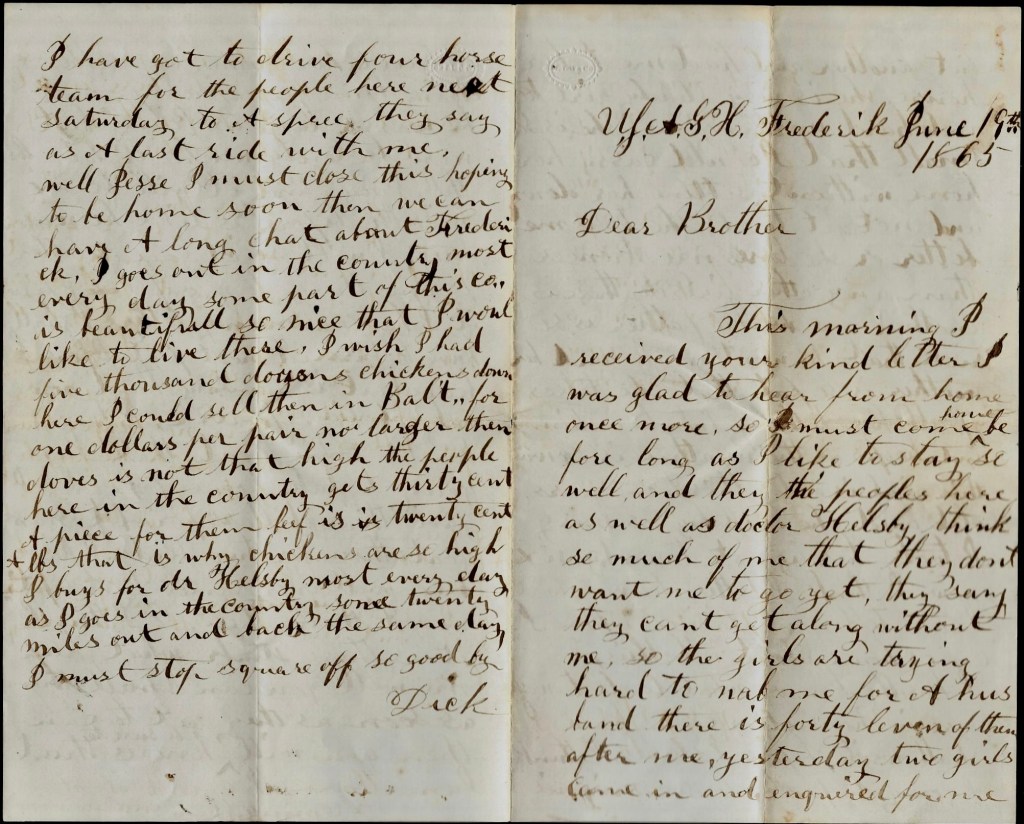 U.S.A.G.H. Frederik June 19th
1865
Dear Brother
This morning I
received your kind letter I
was glad to hear from home
once more, so I must come home be
fore long as I like to stay so
well, and they the peoples here
as well as doctor Helsby think
so much of me that they dont
want me to go yet, they say
they cant get along without
me, so the girls are trying
hard to nab me for A hus
band there is forty leven of them
after me, yesterday two girls
came in and enquired for me
I have got to drive four horse
team for the people here next
saturday to A spree they say
as A last ride with me,
well Jesse I must close this hoping
to be home soon then we can
have A long chat about Frederi
ck, I goes out in the country most
every day some part of this co.,
is beautifull so nice that I woul
like to live there, I wish I had
five thousand chickens down
here I could sell then in Balt., for
one dollars per pair no larger then
doves is not that high the people
here in the country gets thirty cent
A piece for them beef is is twenty cent
A lbs that is why chickens are so high
I buys for dr Helsby most every day
as I goes in the country some twenty
miles out and back the same day,
I must stop square off so good by
Dick